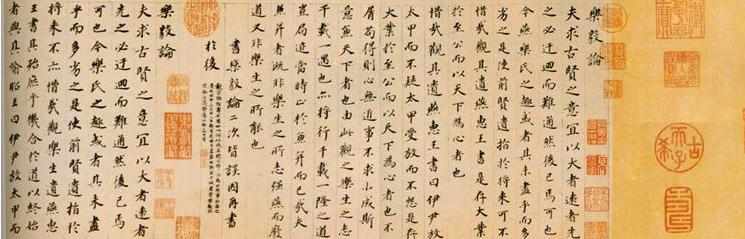 樂毅論
夫求古賢之意宜以大者遠者先
之必迂迴而難通然後已焉可也
今燕樂氏之趣或者其未盡乎而多
劣之是使前賢遺指於將來可不
惜哉觀其遺燕惠王書是存大業
於至公而以天下為心者也
惜哉觀其遺燕惠王書曰伊尹放
太甲而不疑太甲受放而不怨是存
大業於至公而以天下為心者也不
屑苟得則心無近事不求小成斯
意兼天下者也由此觀之樂生之志
千載一遇也亦將行千載一隆之道
豈局迹當時止於兼并而已哉夫
兼并者疏非樂生之所志彊燕而廢
道又非樂生之所求也
書樂毅論二次皆誤因再書
於後
樂毅論
夫求古賢之意宜以大者遠者
先之必迂迴而難通然後已焉
可也今樂氏之趣或者其未盡
乎而多劣之是使前賢遺指於
將來不亦惜哉觀樂生遺燕惠
王書其殆庶乎機合於道以終始
者與其喻昭王曰伊尹放太甲而
古希天子